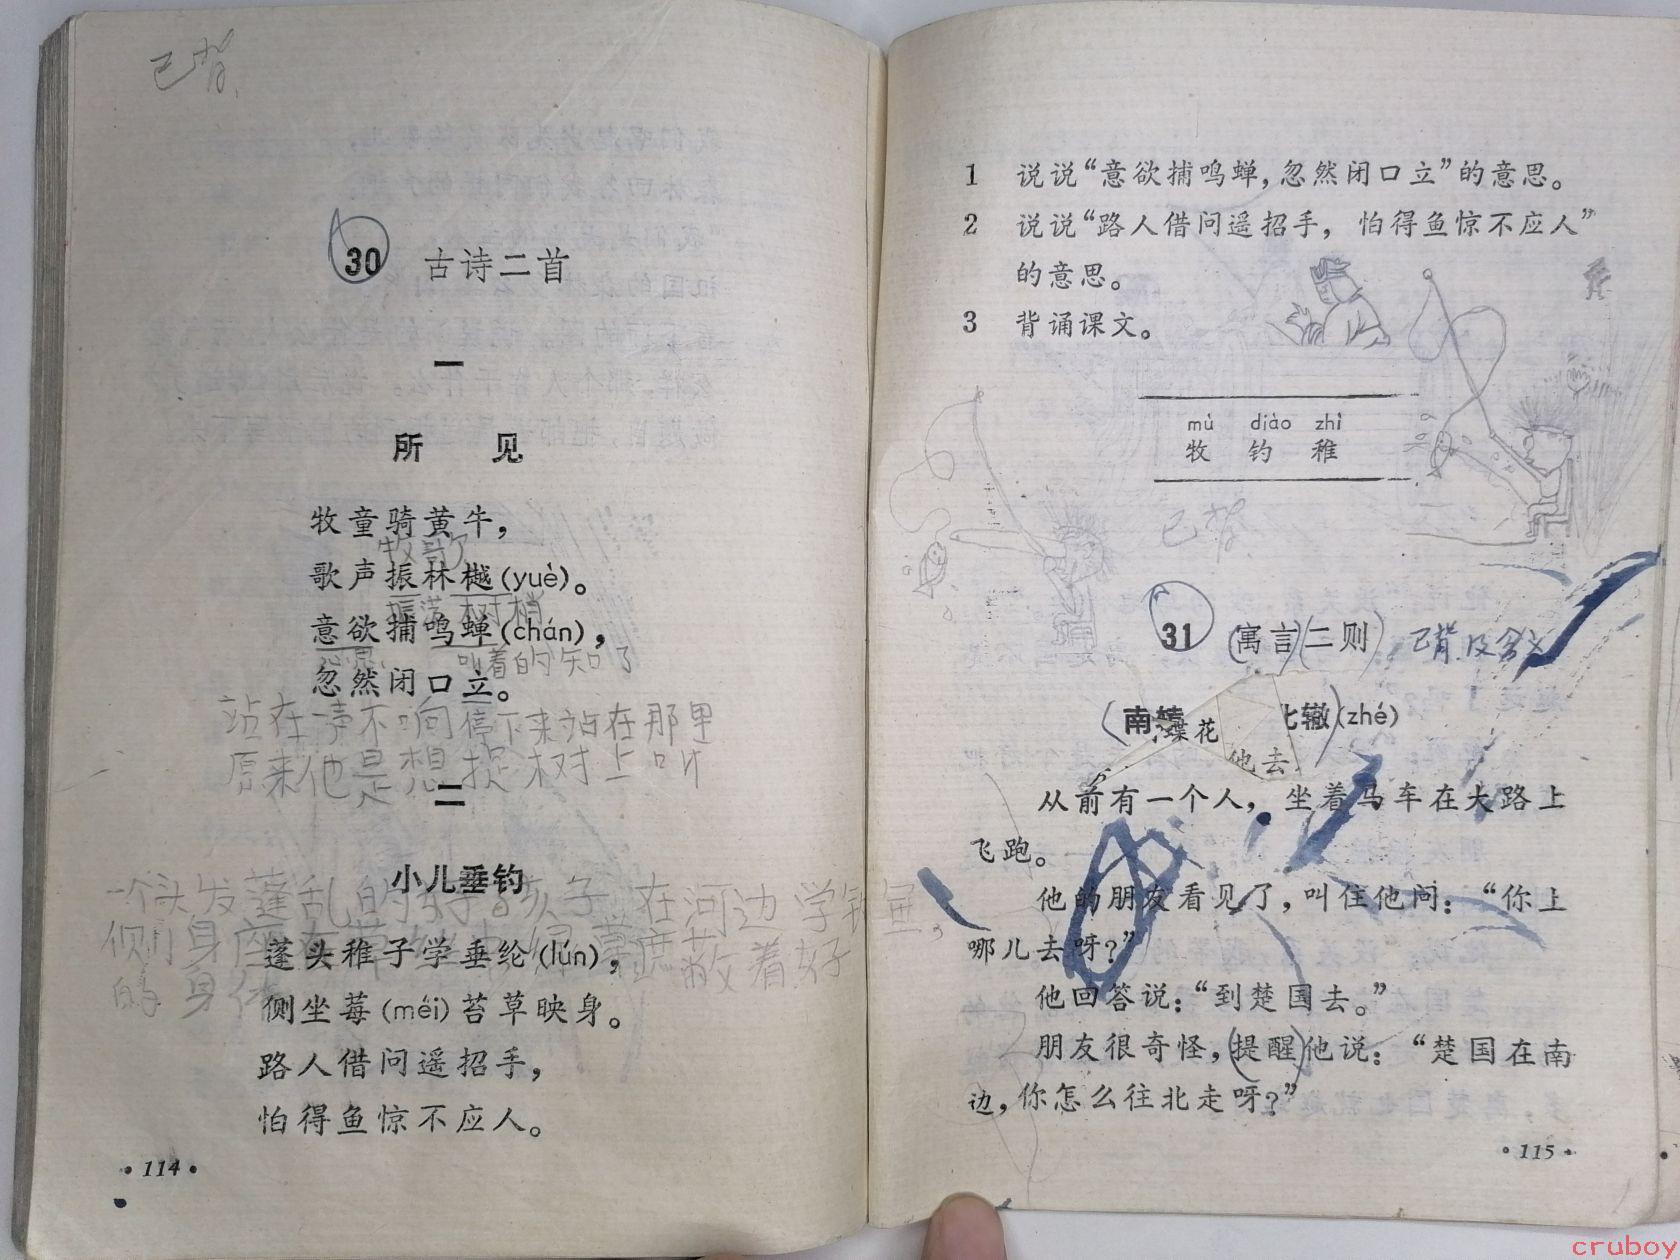 已背
30 古诗二首
一
所 见
牧童骑黄牛，
牧歌
歌声振林樾(yuè)。
振荡 树梢
意欲捕鸣蝉(chán)，
叫着的知了
忽然闭口立。
站在一声不响停下来站在那里
原来他是想捉树上叫
二
小儿垂钓
一个头发蓬乱的 孩子 在河边学钓鱼,
蓬头稚子学垂纶(lún)，
侧身座 遮蔽着好
侧坐莓(méi)苔草映身。
的身体
路人借问遥招手，
怕得鱼惊不应人。
·114·
1 说说“意欲捕鸣蝉，忽然闭口立”的意思。
2 说说“路人借问遥招手，怕得鱼惊不应人”
的意思。
3 背诵课文。
mù diào zhì
牧 钓 稚
已背
31 寓言二则 已背及含义
南辕 北辙(zhé)
蝶花
他去
从前有一个人，坐着马车在大路上
飞跑。
他的朋友看见了，叫住他问：“你上
哪儿去呀？”
他回答说：“到楚国去。”
朋友很奇怪，提醒他说：“楚国在南
边，你怎么往北走呀？”
·115·
cruboy